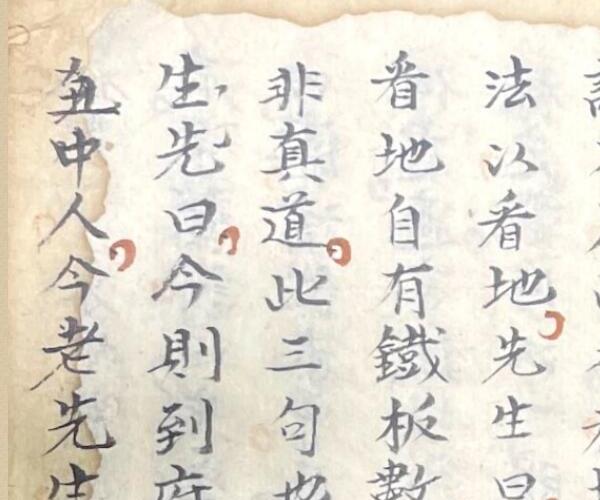 法以看地先生曰
看地自有鐵板數
非真道此三句也
生先曰今則到府
中人今老先生